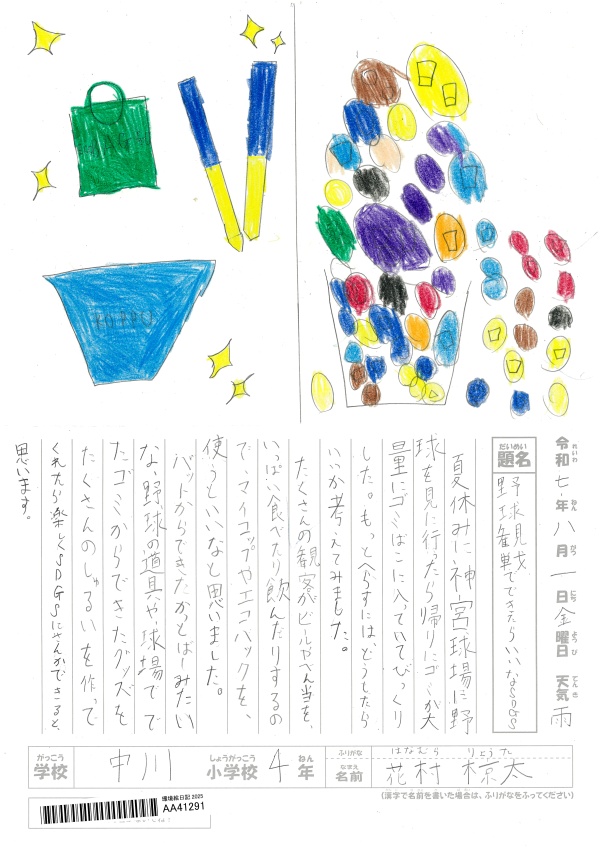 令和七年八月一日金曜日 天気雨
れいわ ねん がつ にち ようび てんき
だいめい
題名
野球観戦でできたらいいなSDGS
夏休みに神宮球場に野
球を見に行ったら帰りにゴミが大
量にゴミばこに入っていてびっくり
した。もっとへらすには、どうしたら
いいか考えてみました。
たくさんの観客がビールやべん当を、
いっぱい食べたり飲んだりするの
で、マイコップやエコバックを、
使うといいなと思いました。
バットからできたかっとばしみたい
な、野球の道具や、球場ででて
たゴミからできたグッズを
たくさんのしゅるいを作って
くれたら楽しくSDGSにさんかできると、
思います。
がっこう
学校
中川
しょうがっこう
小学校
4
ねん
年
ふりがな
はなむら りょうた
なまえ
名前
花村 椋太
(漢字で名前を書いた場合は、ふりがなをふってください)
環境絵日記 2025
AA41291